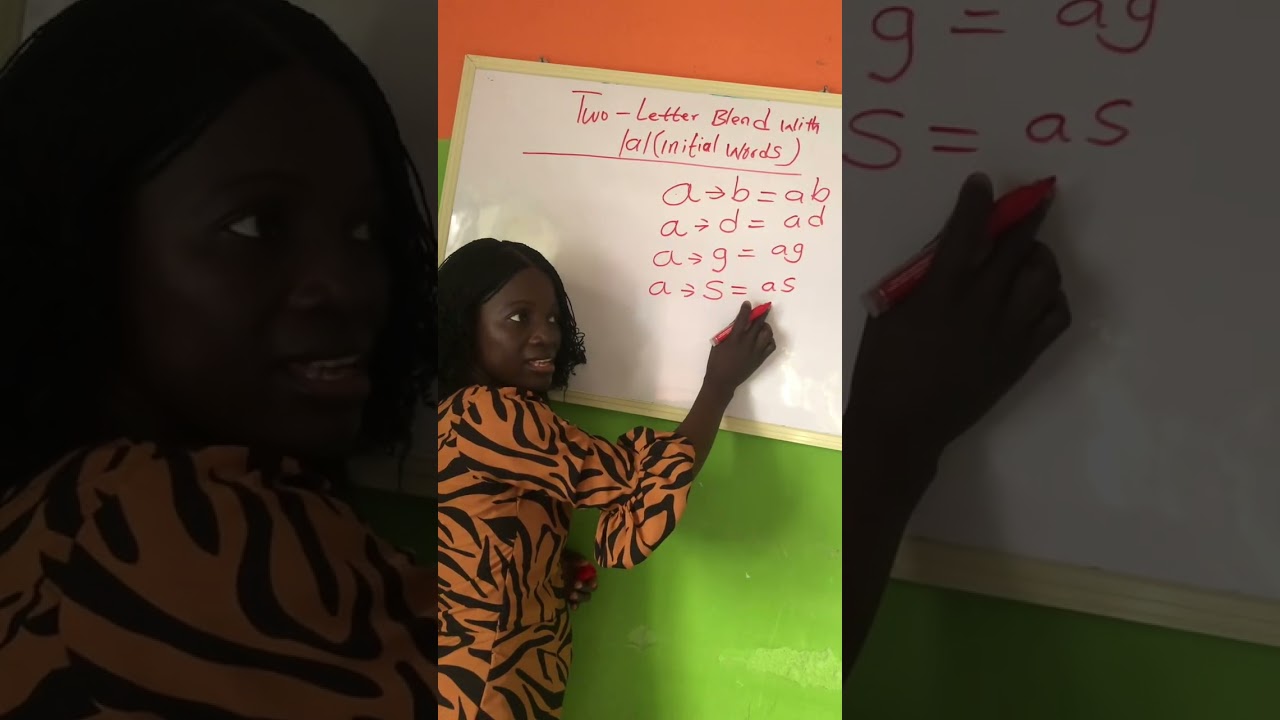 Two-Letter Blend with
/a/(initial words)
a → b = ab
a → d = ad
a → g = ag
a → s = as
g = ag
S = as